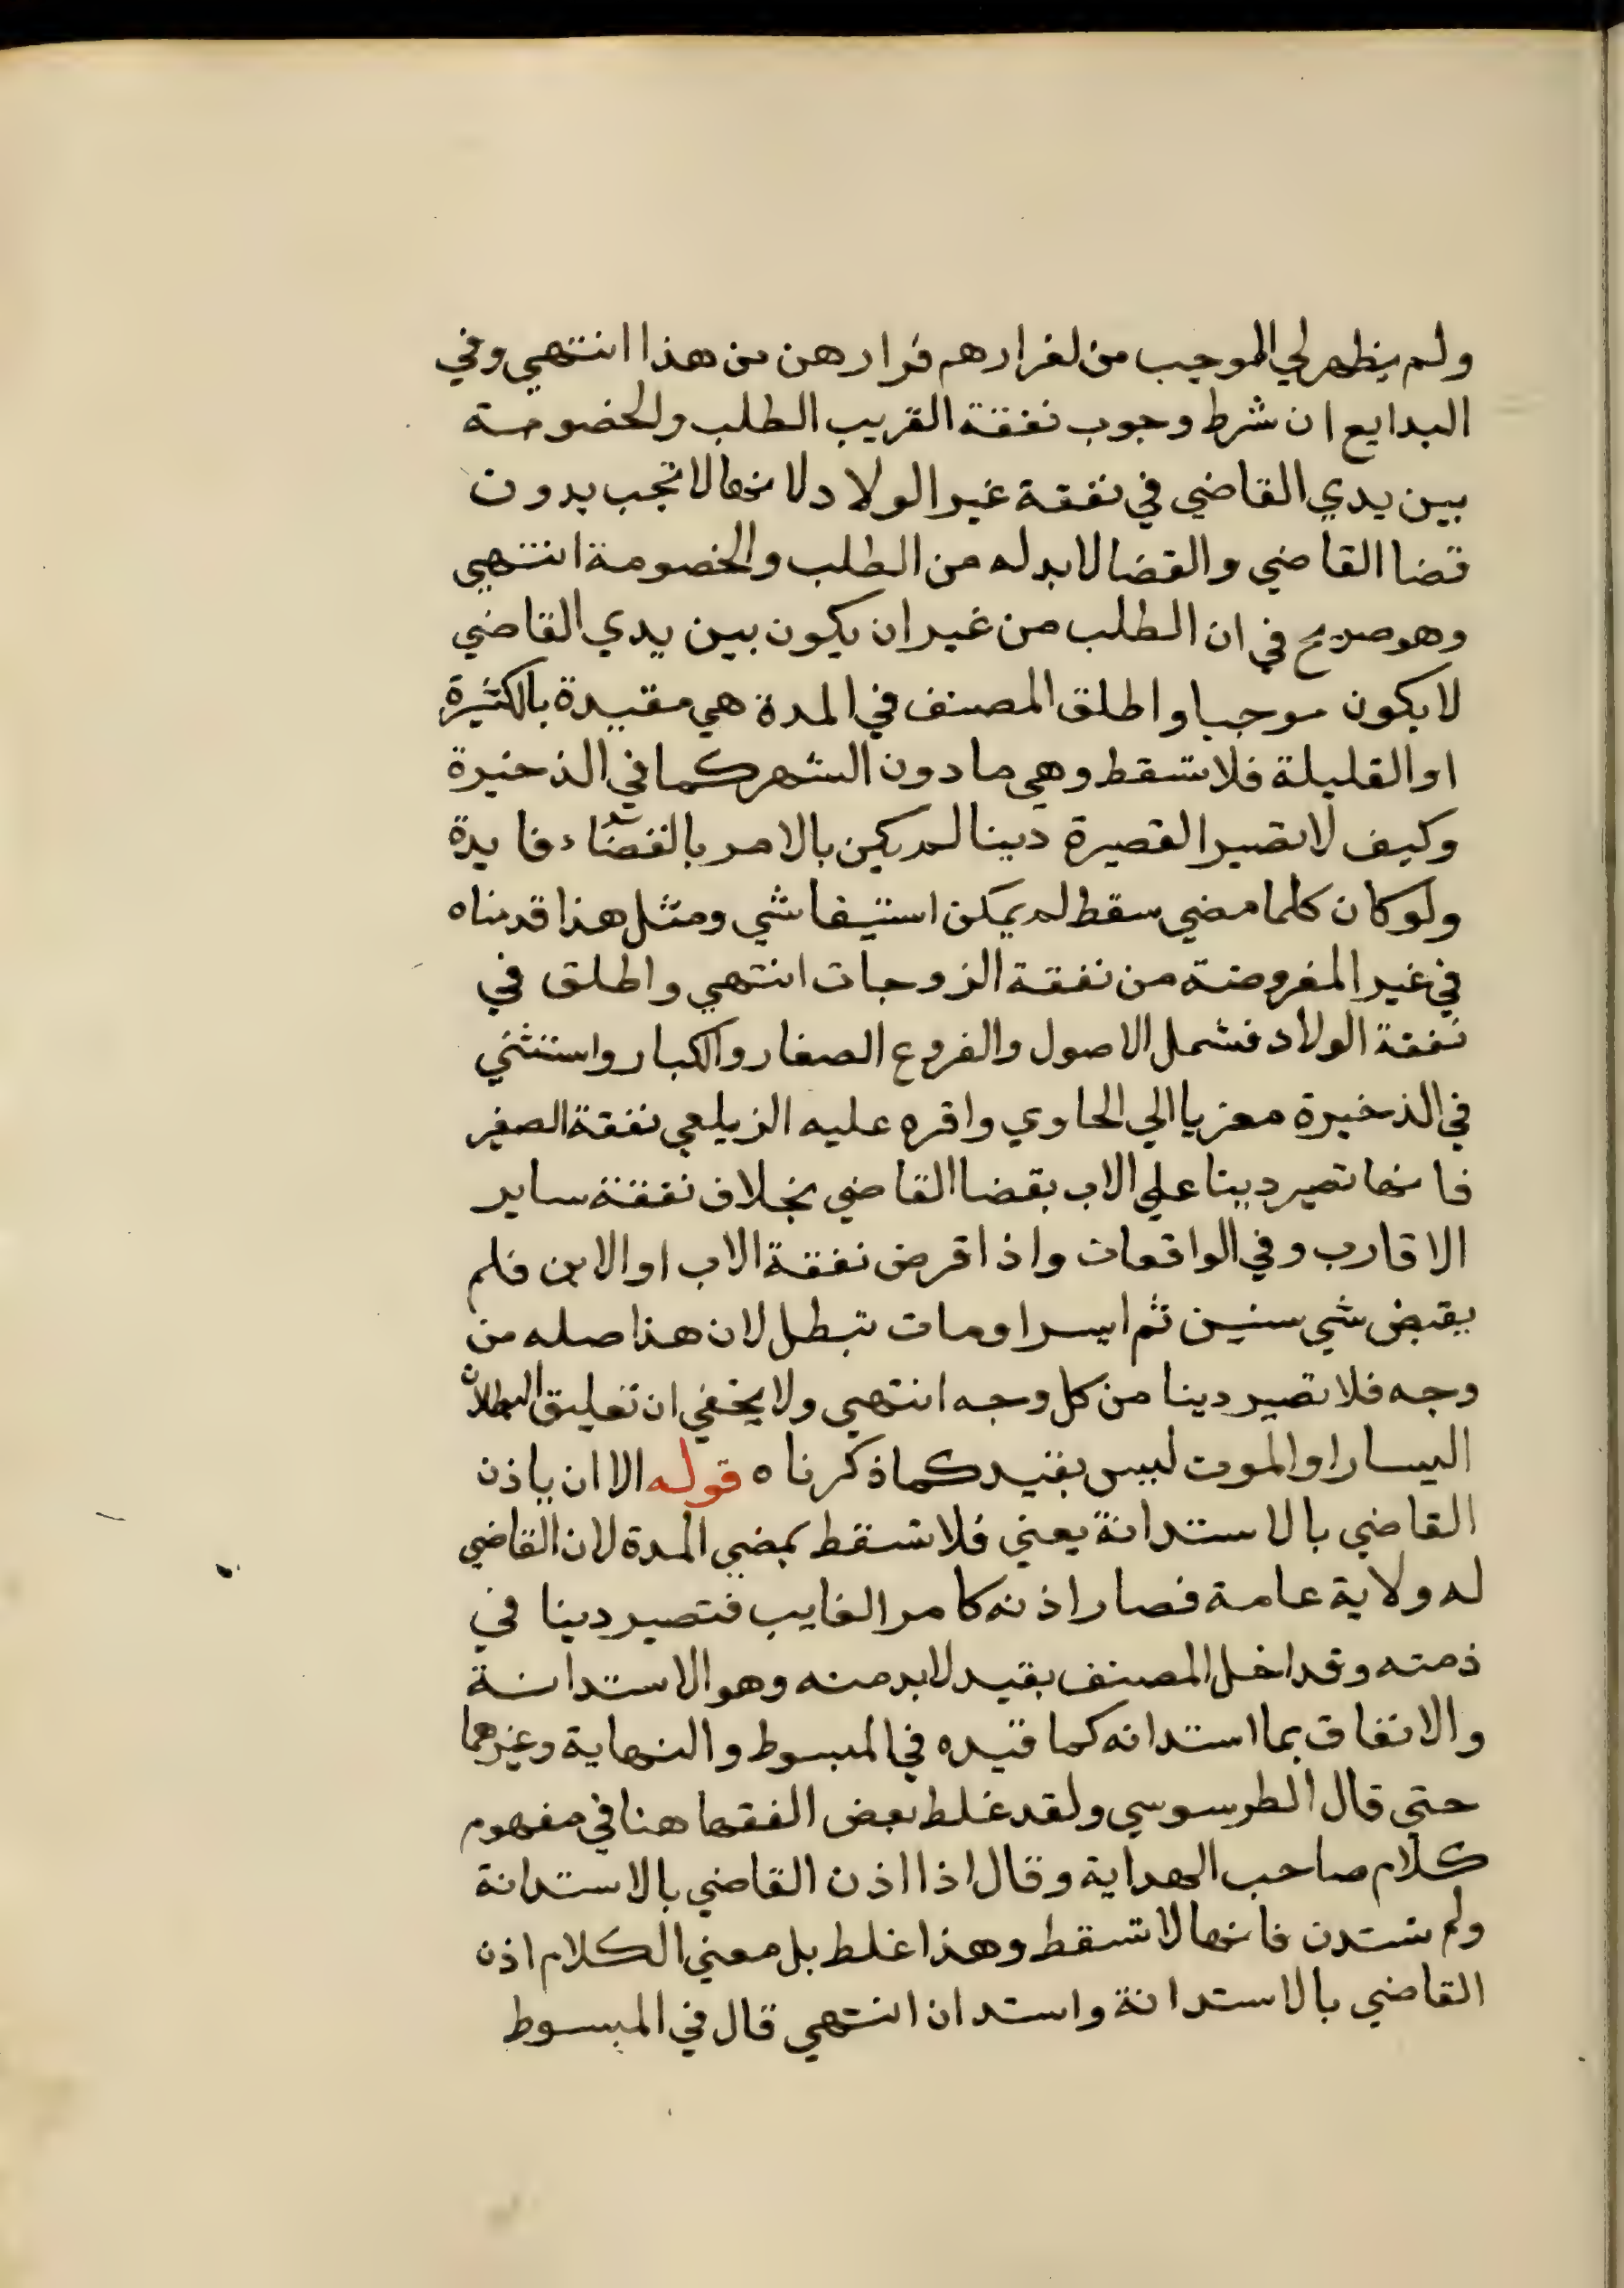 ولم يظهر لي الموجب من لفرارهم فرارهن من هذا انتهي وفي
البدايع ان شرط وجوب نفقة القريب الطلب والخصومة
بين يدي القاضي في نفقة غير الولاد لانها لا تجب بدون
قضا القاضي والقضا لا بد له من الطلب والخصومة انتهي
وهو صريح في ان الطلب من غير ان يكون بين يدي القاضي
لا يكون موجبا واطلق المصنف في المدة هي مقيدة بالكثيرة
او القليلة فلا تسقط وهي ما دون الشهر كما في الذخيرة
وكيف لا تصير القصيرة دينا لم يكن بالامر بالقضاء فايدة
ولو كان كلما مضي سقط لم يمكن استيفا شي ومثل هذا قدمناه
في غير المفروضة من نفقة الزوجات انتهي واطلق في
نفقة الولاد فشمل الاصول والفروع الصغار والكبار واستثني
في الذخيرة معزيا الي الحاوي واقره عليه الزيلعي نفقة الصغير
فانها تصير دينا علي الاب بقضا القاضي بخلاف نفقة ساير
الاقارب وفي الواقعات واذا فرض نفقة الاب او الابن فلم
يقبض شي سنين ثم ايسر او مات تبطل لان هذا صله من
وجه فلا تصير دينا من كل وجه انتهي ولا يخفي ان تعليق البطلان
اليسار او الموت ليس بقيد كما ذكرناه قوله الا ان ياذن
القاضي بالاستدانة يعني فلا تسقط بمضي المدة لان القاضي
له ولاية عامة فصار اذنه كامر الغايب فتصير دينا في
ذمته وقد اخل المصنف بقيد لا بد منه وهو الاستدانة
والانفاق بما استدانه كما قيده في المبسوط والنهاية وغيرهما
حتي قال الطرسوسي ولقد غلط بعض الفقها هنا في مفهوم
كلام صاحب الهداية وقال اذا اذن القاضي بالاستدانة
ولم تستدن فانها لا تسقط وهذا غلط بل معني الكلام اذن
القاضي بالاستدانة واستدان انتهي قال في المبسوط